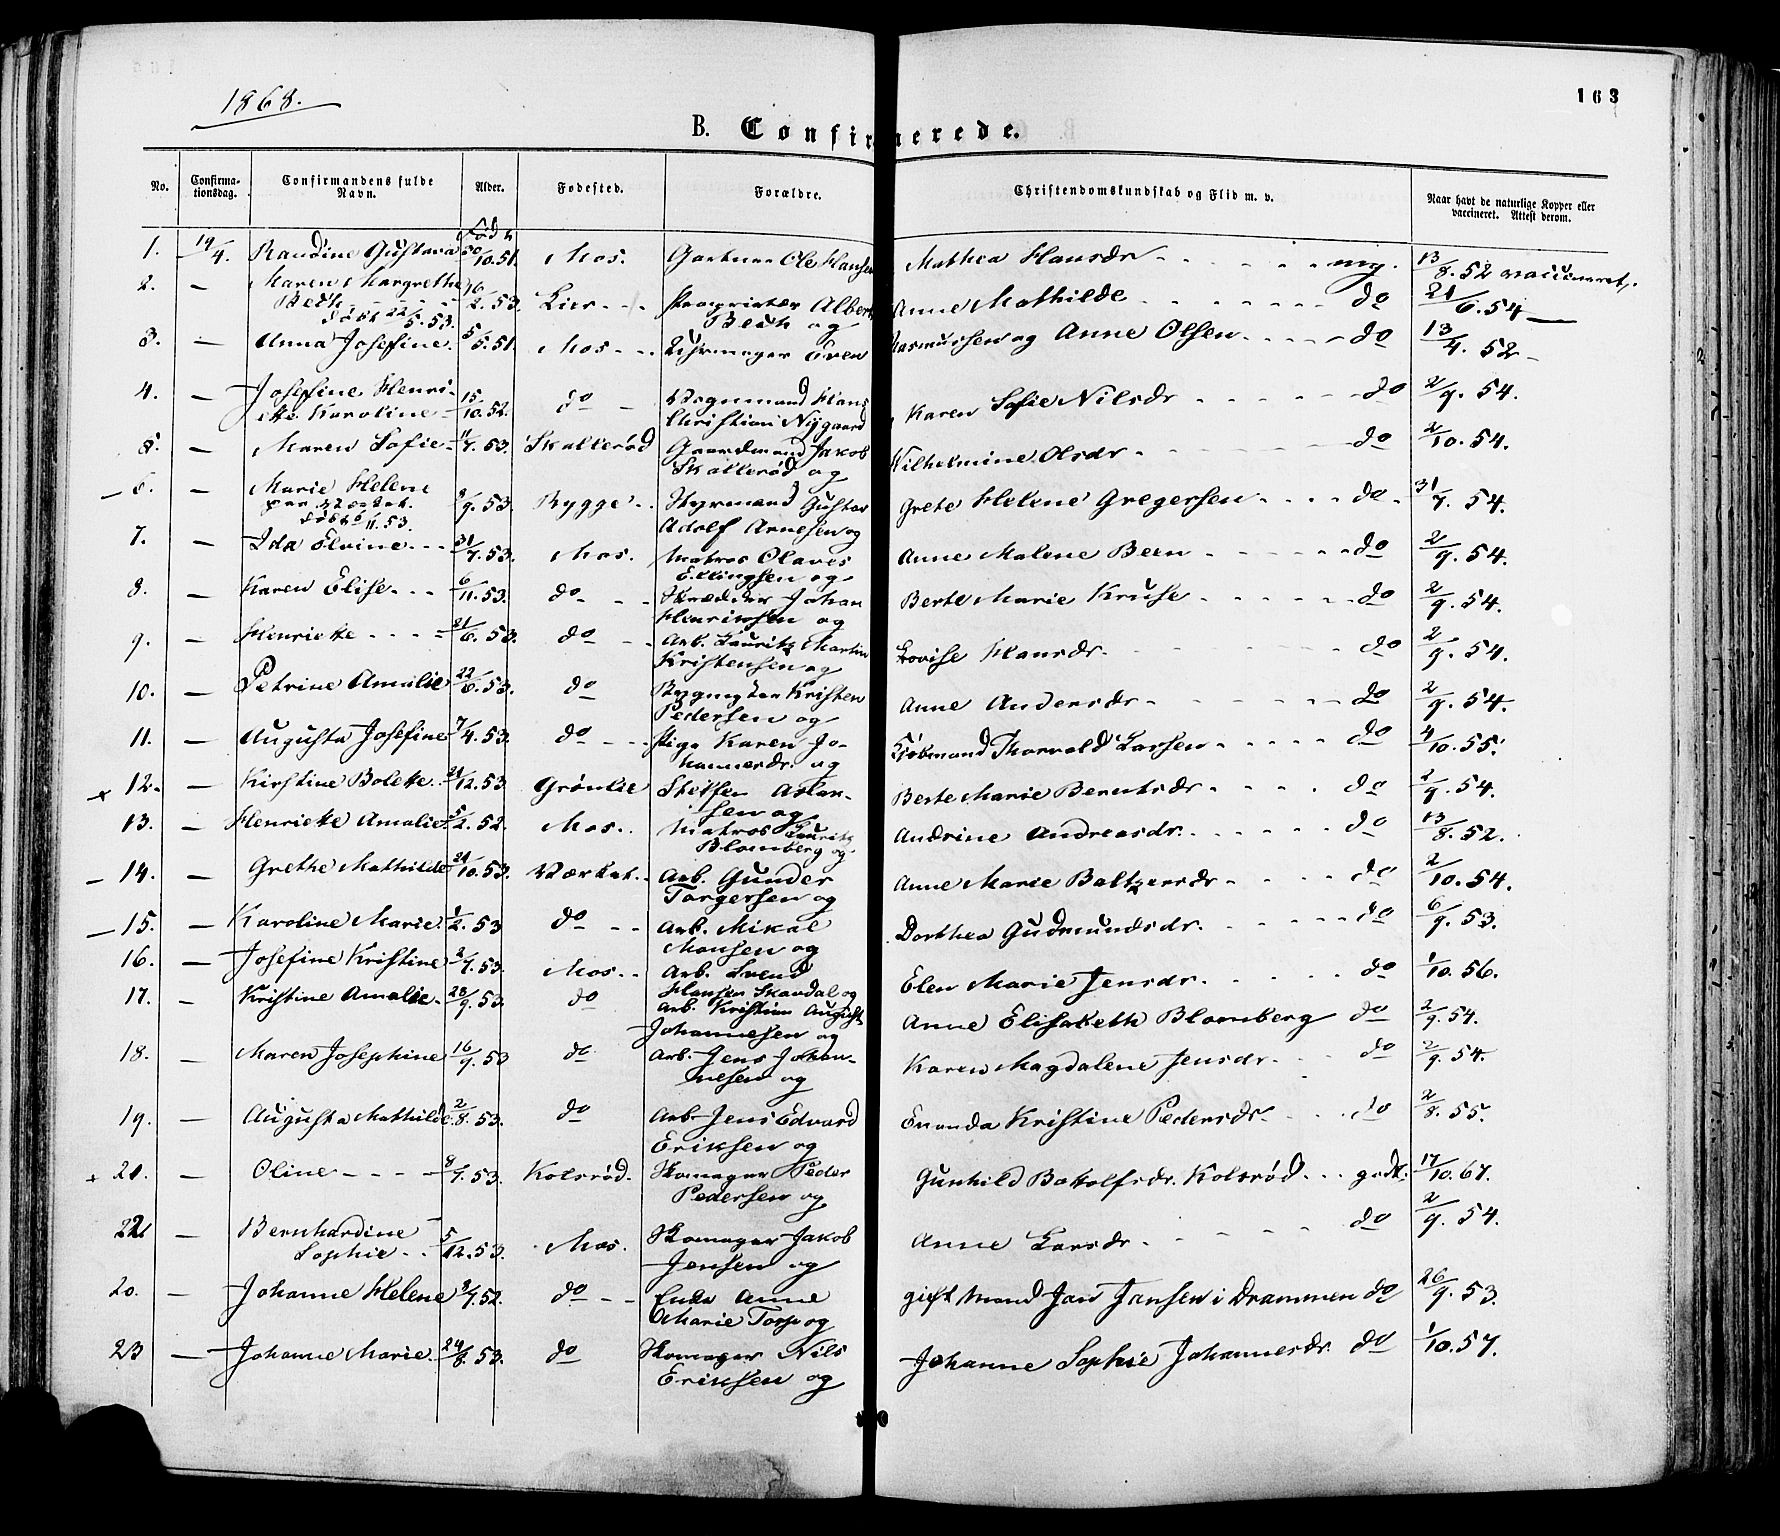 1868.
163
B. Confirmerede.
No. Confirma-tionsdag. Confirmandens fulde Navn. Alder. Fødested. Forældre. Christendomskundskab og Flid m. v. Naar havt de naturlige Kopper eller vaccineret. Attest derom.
Født
1. 19/4. Randine Gustava 30/10.51. Mos. Gartner Ole Hansen Mathea Hansdr - - - mg. 13/8.52 vaccineret.
2. — Maren Margrethe
Bech - - - - 16/2.53. Lier - - Proprietær Albert Anne Mathilde - - - do 21/6.54 —
døbt 22/5.53. Bech og
3. — Anna Josefine. 5/5.51. Mos - - Uhrmager Sven Rasmussen og Anne Olsen - - - do 13/4.52 -
4. — Josefine Henri-
ette Karoline - 15/10.52. do - Vognmand Hans Karen Sofie Nilsdr - - - do 2/9.54.
Christian Nygaard
5. — Maren Sofie - 11/7.53. Skallerød Gaardmand Jakob Vilhelmine Olsdr - - - do 2/10.54.
Skallerød og
— 6. — Marie Helene 9/9.53. Rygge - - Styrmand Gustav Grete Helene Gregersen - - - do - 31/7.54.
døbt 6/11.53. Adolf Arnesen og
7. — Ida Elvine - - - 31/7.53. Mos. Matros Olaves Anne Malene Been - - - do 2/9.54.
Ellingsen og
8. — Karen Elise - - - 6/11.53. do - - - Skrædder Johan Berte Marie Kruse - - - do 2/9.54.
Henriksen og
9. — Henriette - - - - 21/6.53. do - - Arb. Lauritz Martin Lovise Hansdr. - - - do 2/9.54.
Kristensen og
10. — Petrine Amalie 22/6.53. do Bygmester Kristen Anne Andersdr - - - do 2/9.54.
Pedersen og
11. — Augusta Josefine 7/4.53. do - - - Pige Karen Jo- Kjøbmand Thorvald Larsen - - - do 4/10.55.
hannesdr. og
x 12. — Kirstine Bolette. 21/12.53. Grønlie Steffen Aslak- Berte Marie Berntsdr - - - do 2/9.54.
sen og
13. — Henriette Amalie. 5/2.52. Mos. Matros Lauritz Andrine Andreasdr. - - - do 13/8.52.
Blomberg og
— 14. — Grethe Mathilde 24/10.53. Værket. - Arb. Gunder Anne Marie Baltzersdr - - - do 2/10.54.
Torgersen og
— 15. — Karoline Marie. 1/2.53 do - - Arb. Mikal Dorthea Gudmundsdr. - - - do 6/9.53.
Monsen og
16. — Josefine Kristine 2/7.53. Mos. - Arb. Svend Elen Marie Jensdr. - - - do 1/10.56.
Hansen Skaudal og
17. — Kristine Amalie. 28/9.53. do Arb. Kristian August Anne Elisabeth Blomberg do 2/9.54.
Johannesen og
18. — Maren Josephine 16/9.53 do Arb. Jens Johan- Karen Magdalene Jensdr. - - - do 2/9.54.
nesen og
19. — Augusta Mathilde. 2/8.53. do Arb. Jens Edvard Kristine Pedersdr - - - do 2/8.55.
Eriksen og
x 21. — Oline - - - - 8/7.53. Kolsrød. Skomager Peder Gunhild Botolfsdr. Kolsrød. - - godt. 17/10.67.
Pedersen og
22. — Bernhardine
Sophie - - 5/12.53. Mos. Skomager Jakob Anne Larsdr - - - do 2/9.54.
Jensen og
20. — Johanne Helene 3/7.52. do - - Enke Anne gift Mand Jan Jansen i Drammen do 26/9.53.
Marie Torp og
23 — Johanne Marie. 24/8.53. do Skomager Nils Johanne Sophie Johannesdr. do 1/10.57.
Eriksen og